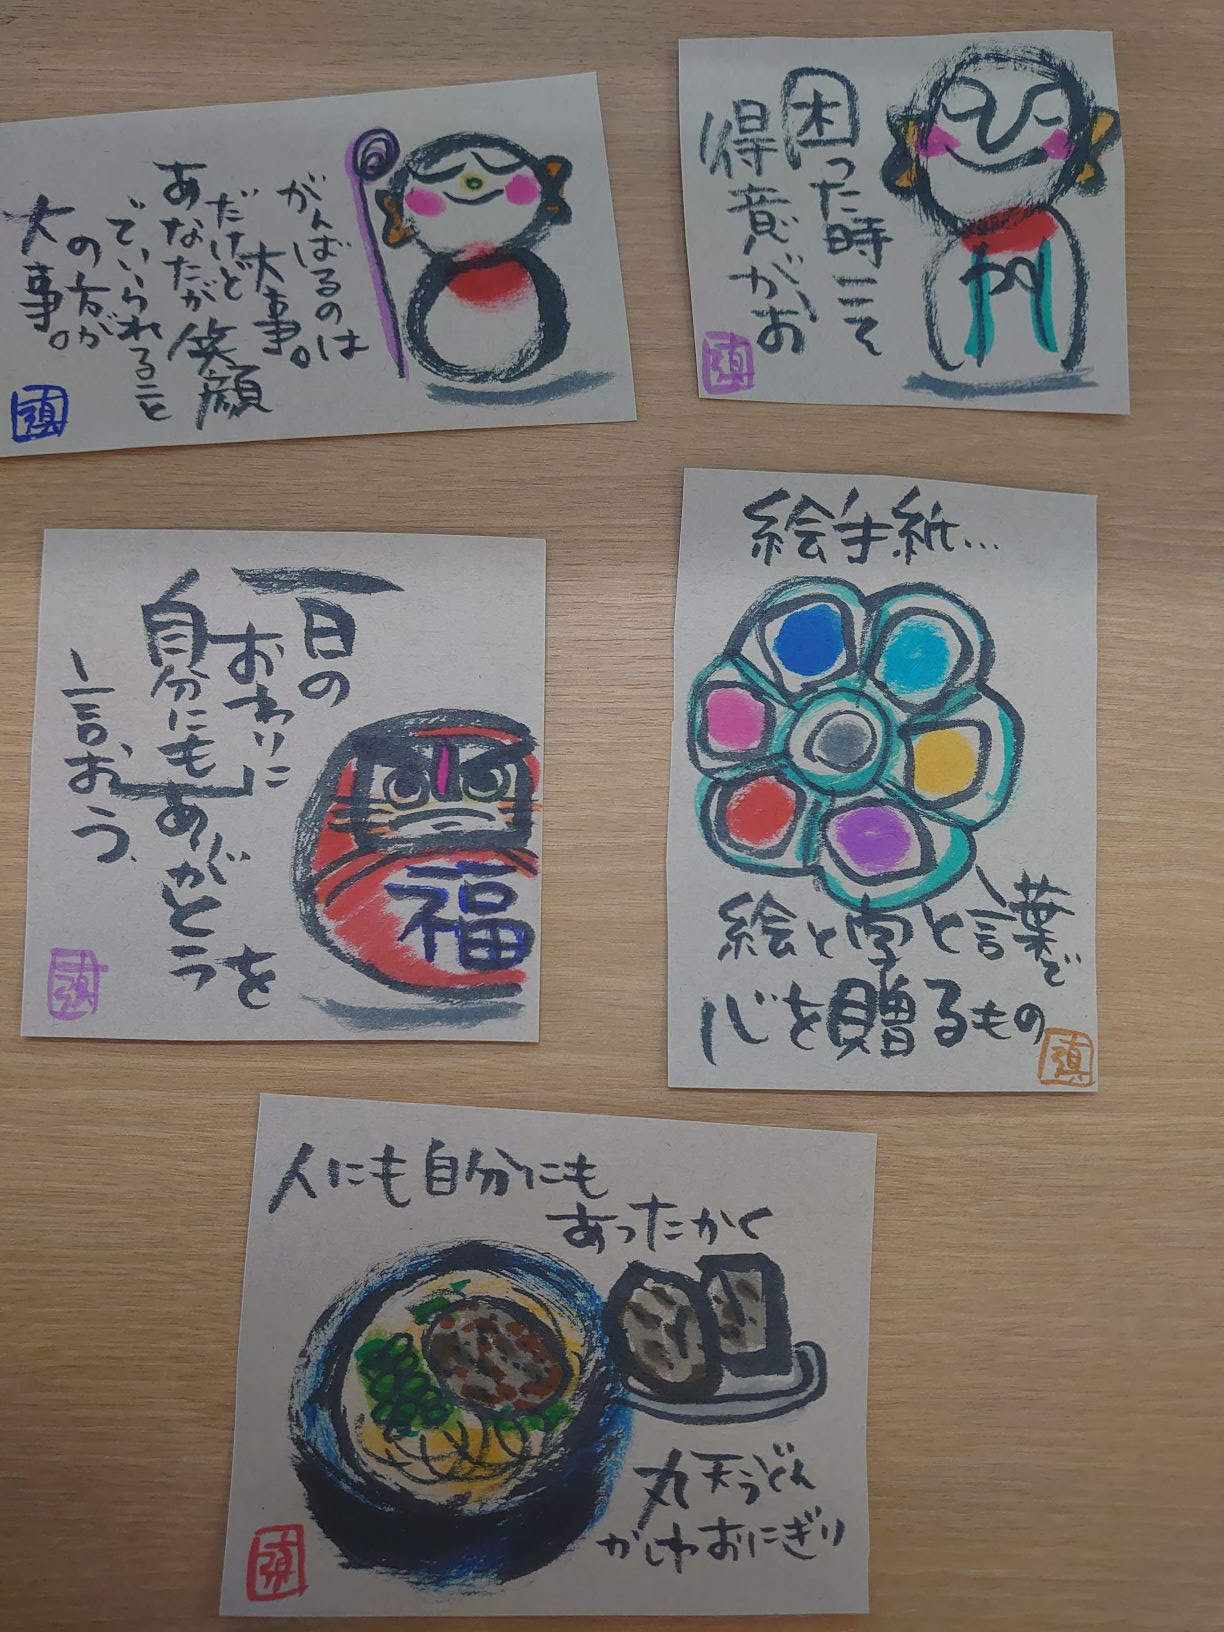 がんばるのは
大事。
だけど
あなたが笑顔
でいられること
の方が
大事。
困った時こそ
得意がお
一日の
おわりに
自分にもありがとうを
言おう。
福
絵手紙…
絵と字と言葉で
心を贈るもの
人にも自分にも
あったかく
丸天うどん
かしわおにぎり